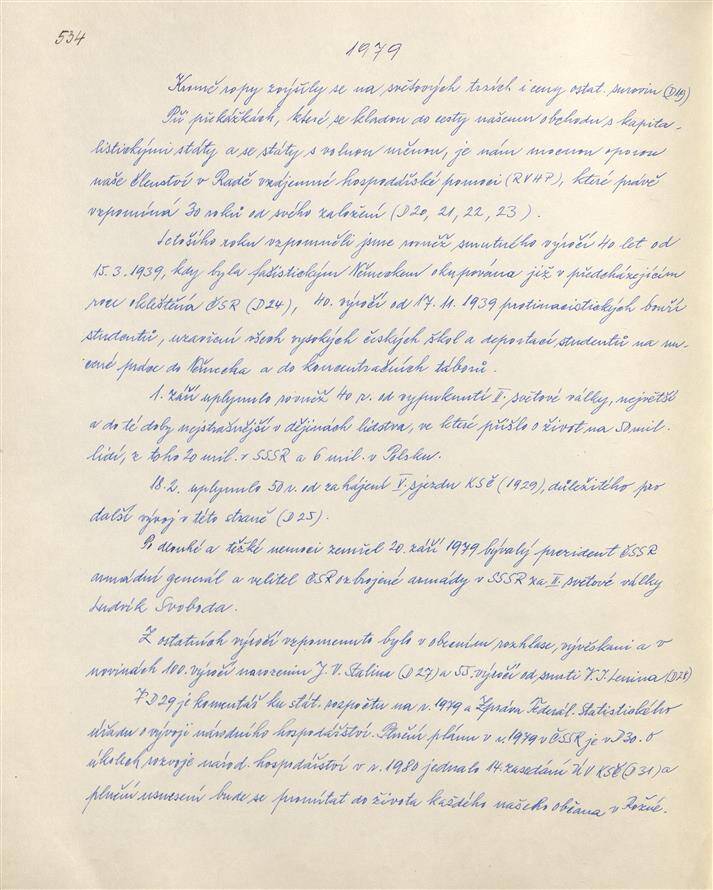 534
1979
Kromě ropy zvýšily se na světových trzích i ceny ostat. surovin (D19)
Při překážkách, které se kladou do cesty našemu obchodu s kapita-
listickými státy a se státy s volnou měnou, je nám mocnou oporou
naše členství v Radě vzájemné hospodářské pomoci (RVHP), které právě
vzpomíná 30 roků od svého založení (D20, 21, 22, 23).
Letošího roku vzpomněli jsme rovněž smutného výročí 40 let od
15.3.1939, kdy byla fašistickým Německem okupována již v předcházejícím
roce okleštěná ČSR (D24), 40. výročí od 17.11.1939 protinacistických bouří
studentů, uzavření všech vysokých českých škol a deportací studentů na nu-
cené práce do Německa a do koncentračních táborů.
1. září uplynulo rovněž 40 r. od vypuknutí II. světové války, největší
a do té doby nejstrašnější v dějinách lidstva, ve které přišlo o život na 50 mil.
lidí, z toho 20 mil. v SSSR a 6 mil. v Polsku.
18.2. uplynulo 50 r. od zahájení V. sjezdu KSČ (1929), důležitého pro
další vývoj v této straně (D25).
Po dlouhé a těžké nemoci zemřel 20. září 1979 bývalý prezident ČSSR
armádní generál a velitel ČSR ozbrojené armády v SSSR za II. světové války
Ludvík Svoboda.
Z ostatních výročí vzpomenuto bylo v obecním rozhlase, vývěskami a v
novinách 100. výročí narozenin J. V. Stalina (D27) a 55. výročí od smrti V. I. Lenina (D28)
V D29 je komentář ku stát. rozpočtu na r. 1979 a Zpráva Federál. Statistického
úřadu o vývoji národního hospodářství. Plnění plánu v r. 1979 v ČSSR je v D30. O
úkolech rozvoje národ. hospodářství v r. 1980 jednalo 14. zasedání ÚV KSČ (D31) a
plnění usnesení bude se promítat do života každého našeho občana v Rožné.